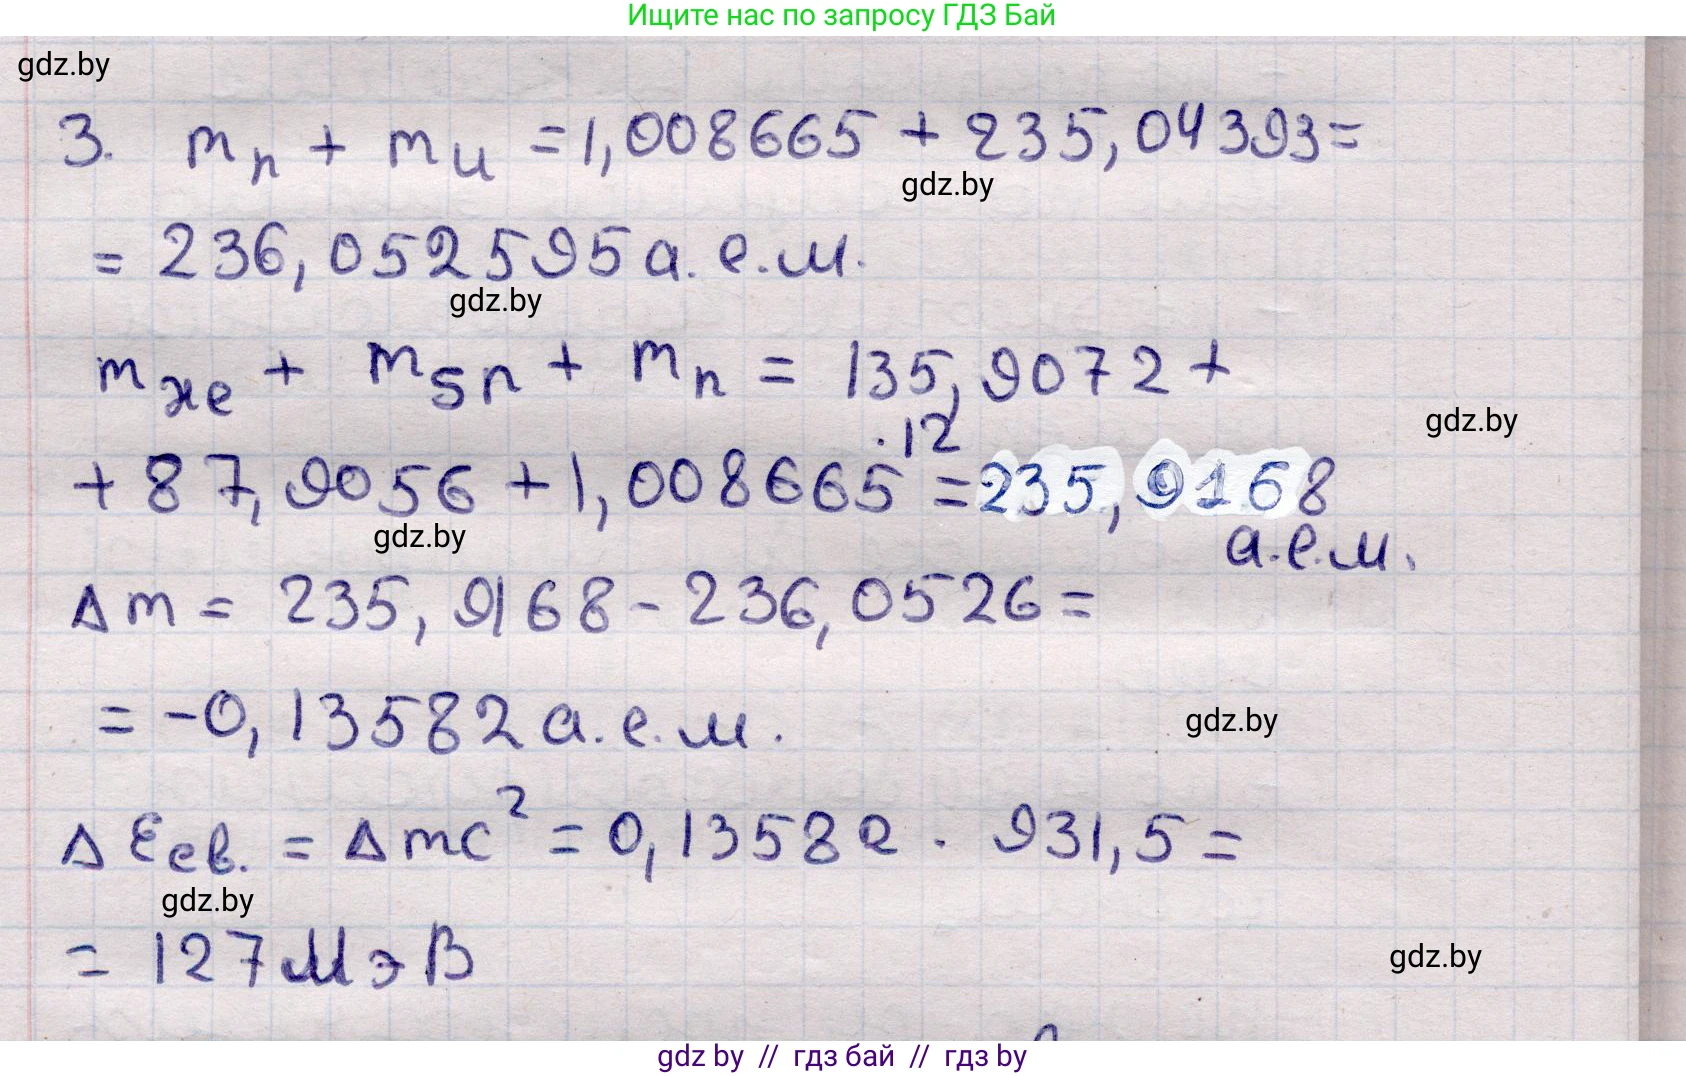 Ищите нас по запросу ГДЗ Бай
gdz.by
3. mn + mu = 1,008665 + 235,04393 =
gdz.by
= 236,052595 а.е.м.
gdz.by
mxe + msn + mn = 135,9072 +
gdz.by
+ 87,9056 + 1,008665 · 12 = 235,9168
а.е.м.
gdz.by
Δm = 235,9168 - 236,0526 =
= -0,13582 а.е.м.
gdz.by
ΔEсв. = Δmc² = 0,13582 · 931,5 =
gdz.by
= 127 МэВ
gdz.by
gdz by // гдз бай // гдз by